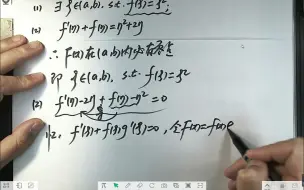 (1) ∃ξ∈(a,b), s.t. f(ξ)=ξ²;
(2) f'(η)=η²+2η
∴ F(x)在(a,b)内必存在零
即 ξ∈(a,b), s.t. f(ξ)=ξ²
(2) f'(η)-2η + f(η)-η²=0
f'(ξ)+f(ξ)g'(ξ)=0, 令F(x)=f(x)e